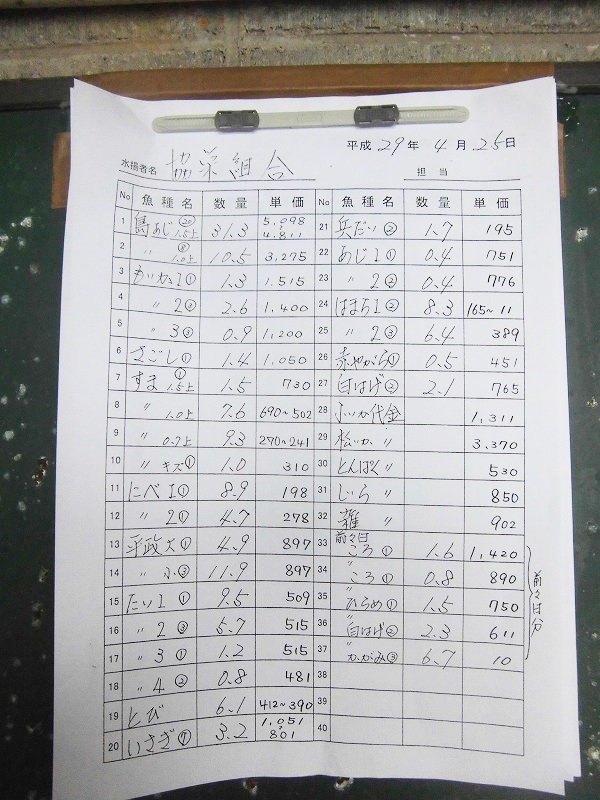 平成 29 年 4 月 25 日
水揚者名 協栄組合 担当
No 魚種名 数量 単価 No 魚種名 数量 単価
1 島あじ ⑳ 1.5上 31.3 5,098~4,811 21 兵だい② 1.7 195
2 〃 ⑧ 1.0上 10.5 3,275 22 あじ1① 0.4 751
3 1① 1.3 1,515 23 〃 2② 0.4 776
4 〃 2 2.6 1,400 24 はまち1② 8.3 165~11
5 〃 3 0.9 1,200 25 〃 2③ 6.4 389
6 さごし① 1.4 1,050 26 赤やがら① 0.5 451
7 すま ① 1.5上 1.5 730 27 白はげ② 2.1 765
8 〃 1.0上 7.6 690~502 28 代金 1,311
9 〃 0.7上 9.3 270~241 29 松いか 〃 3,370
10 〃 キズ① 1.0 310 30 とんぼく 〃 530
11 にべ1① 8.9 198 31 しいら 〃 850
12 〃 2① 4.7 278 32 雑 〃 902
13 平政大① 4.9 897 33 前々日 ころ① 1.6 1,420
14 〃 小③ 11.9 897 34 〃 ころ① 0.8 890
15 たい1① 9.5 509 35 〃 ひらめ① 1.5 750
16 〃 2③ 5.7 515 36 〃 白はげ② 2.3 611
17 〃 3① 1.2 515 37 〃 かがみ③ 6.7 10
前々日分
18 〃 4② 0.8 481 38
19 とび 6.1 412~390 39
20 いさぎ 3.2 1,051~801 40